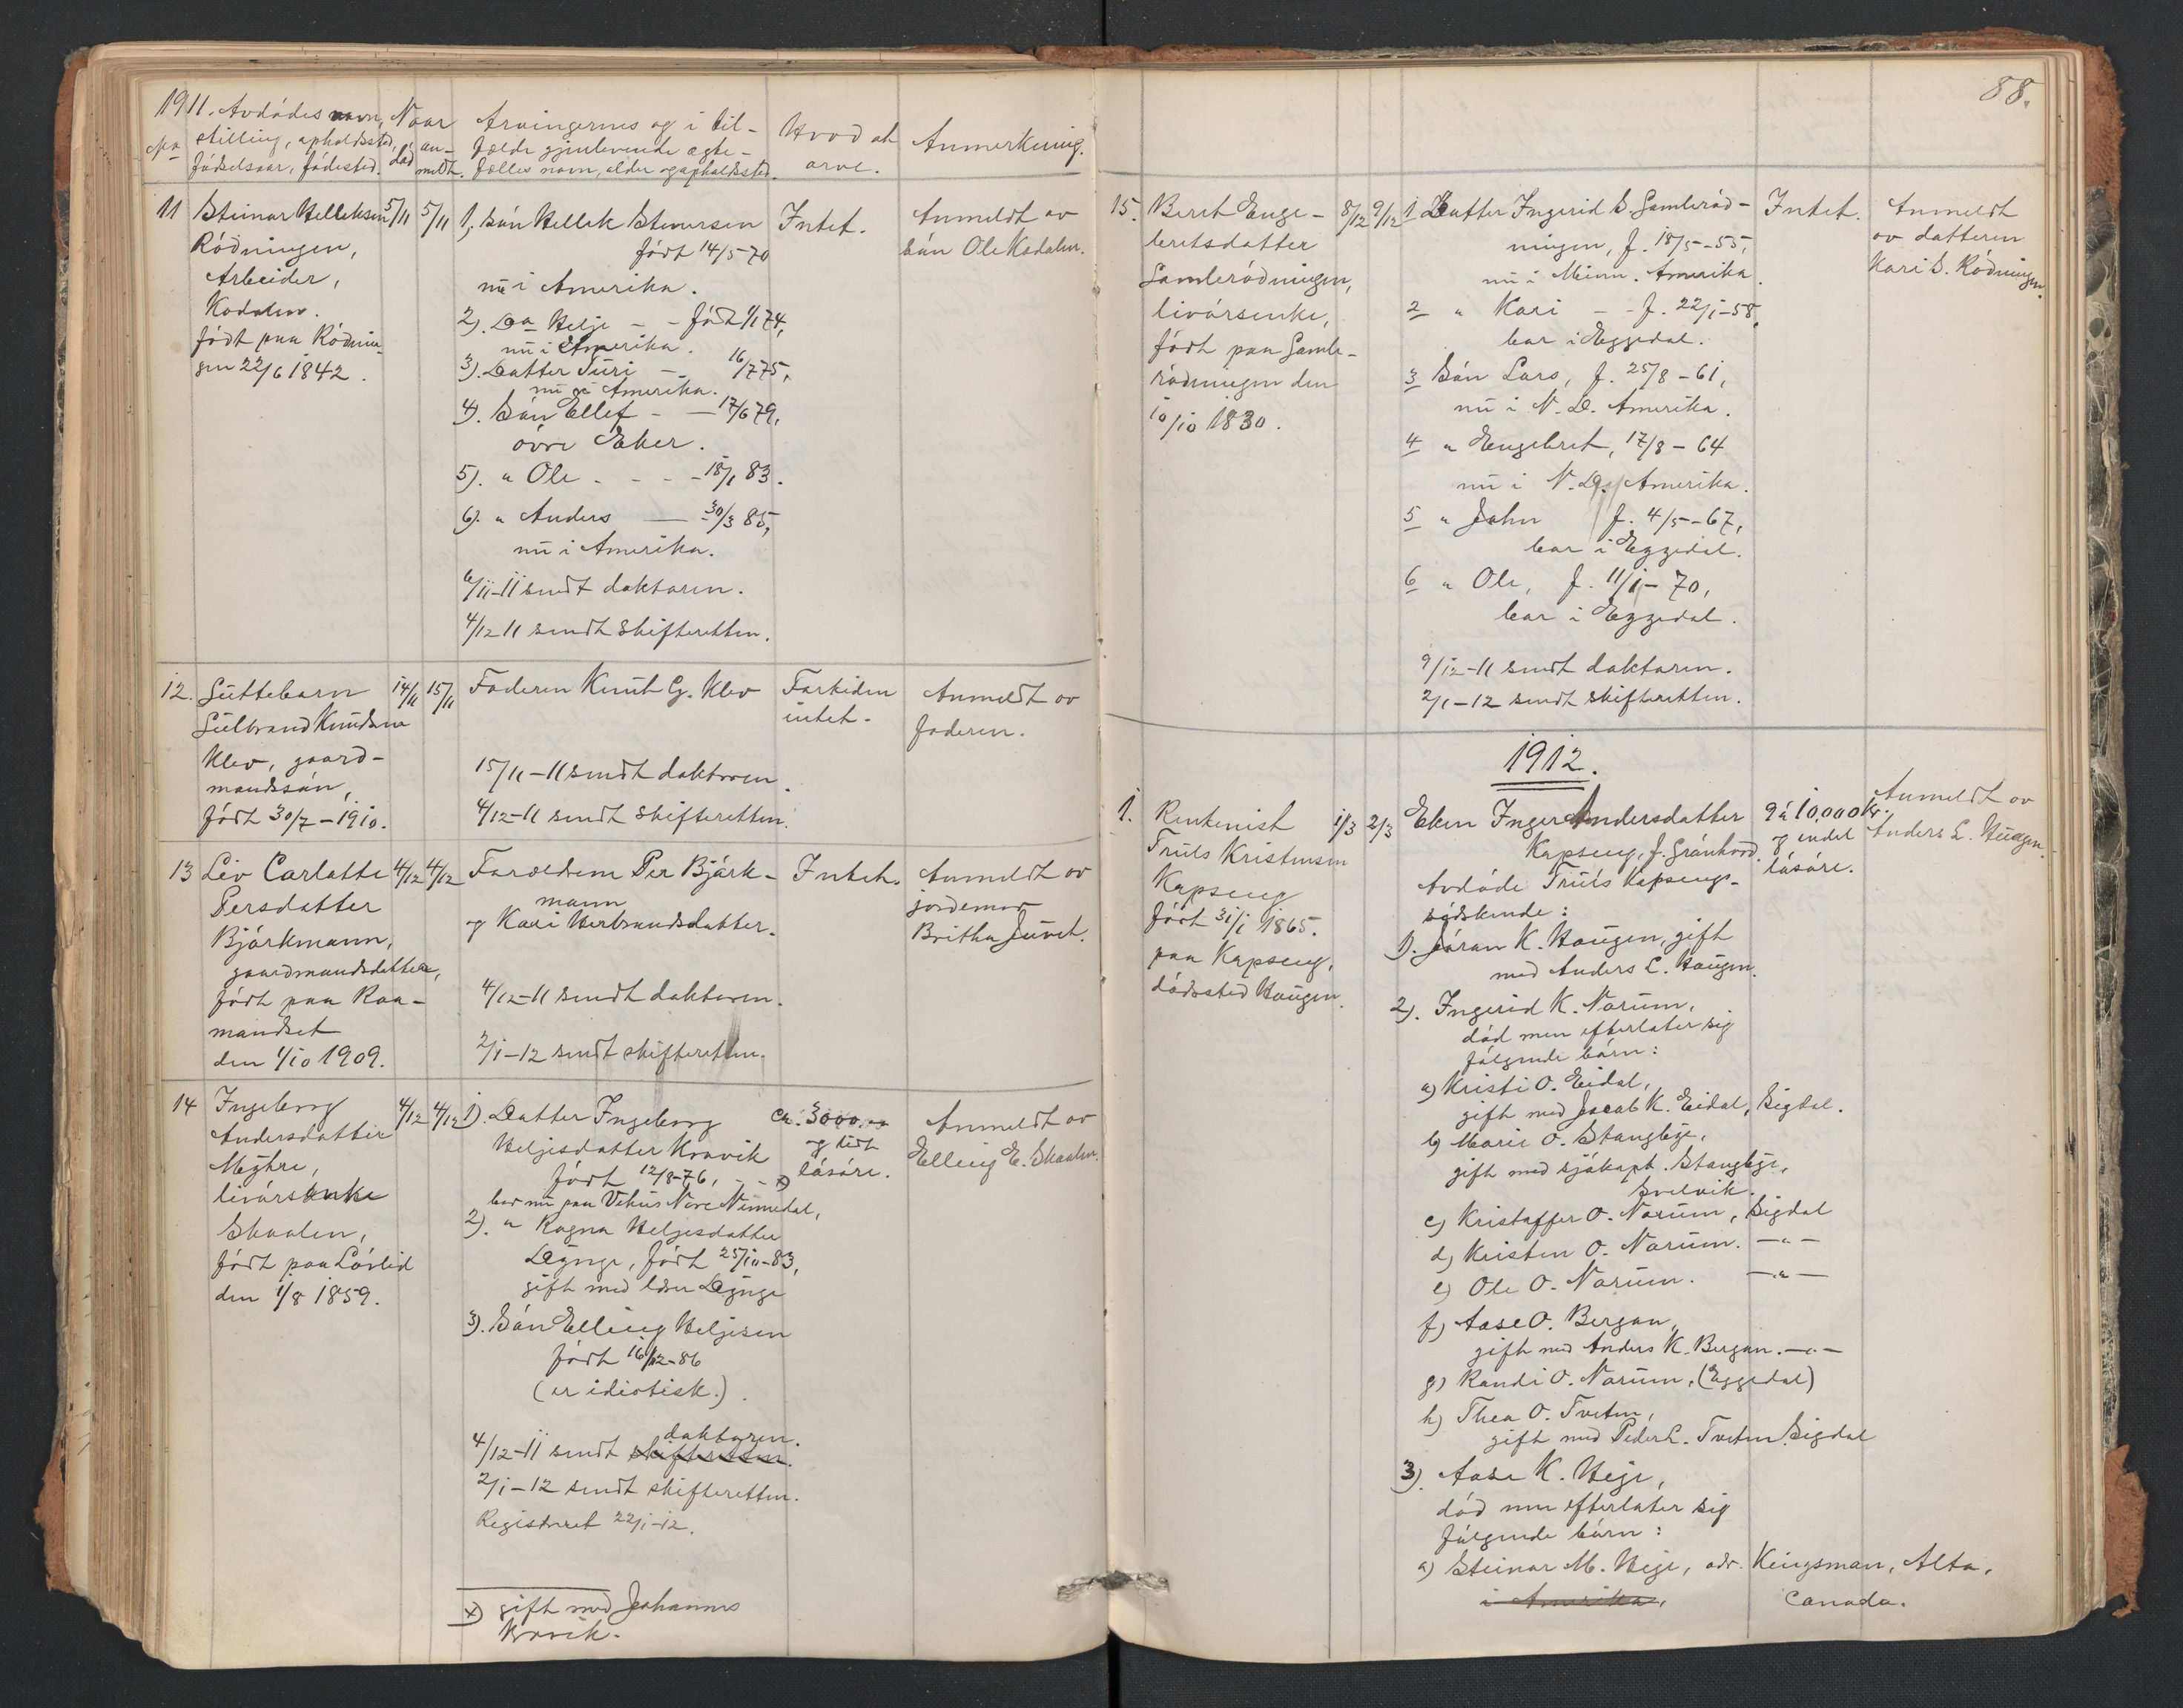 1911. Avdødes navn,
stilling, opholdssted,
fødselsaar, fødested.
No
Naar
død
an-
meldt.
Arvingernes og i til-
fælde gjenlevende ægte-
fælles navn, alder og opholdssted.
Hvad at
arve.
Anmerkning.
11
Steinar Helleksen
Rødningen,
Arbeider,
Kodalen.
født paa Rødnin-
gen 22/6 1842.
5/11
5/11
1) Søn Hellek Steinarsen
født 14/5 70
nu i Amerika.
2). Do Helje - - født 1/1 74,
nu i Amerika.
3). Datter Turi - - 16/7 75,
nu i Amerika.
4). Søn Ellef - - 17/6 79,
øvre Eker.
5). " Ole - - - 18/1 83.
6). " Anders - 30/3 85,
nu i Amerika.
6/11-11 sendt doktoren.
4/12 11 sendt skifteretten.
Intet.
Anmeldt av
søn Ole Kodalen.
12.
Guttebarn
Gulbrand Knudsen
Klev, gaard-
mandssøn,
født 30/7-1910.
14/11
15/11
Faderen Knut G. Klev
15/11-11 sendt doktoren.
4/12-11 sendt skifteretten.
Fortiden
intet.
Anmeldt av
faderen.
13
Liv Carlotte
Persdatter
Bjørkmann,
gaardmandsdatter,
født paa Raa-
mandset
den 1/10 1909.
4/12
4/12
Forældrene Per Bjørk-
mann
og Kari Herbrandsdatter.
4/12-11 sendt doktoren.
2/1-12 sendt skifteretten.
Intet.
Anmeldt av
jordemor
Britha Juvet.
14
Ingeborg
Andersdatter
Myhre,
livørsenke
Skaalen,
født paa Løvlid
den 1/8 1859.
4/12
4/12
1). Datter Ingeborg
Heljesdatter Kravik
født 12/8-76, - - x)
bor nu paa Vehus Nore Numedal,
2). " Ragna Heljesdatter
Dynge, født 25/10-83,
gift med Dynge
3). Søn Elling Heljesen
født 16/12-86
(er idiotisk.).
doktoren.
4/12-11 sendt skifteretten.
2/1-12 sendt skifteretten.
Registreret 22/1-12.
x) gift med Johannes
Kravik.
Ca. 3000.00
og lidt
løsøre.
Anmeldt av
Elling E. Skaalen.
88.
15.
Beret Enge-
bretsdatter
Gamlerødningen,
livørsenke,
født paa Gamle-
rødningen den
10/10 1830.
8/12
9/12
1 Datter Ingerid S. Gamlerød-
ningen, f. 18/5-55,
nu i Minn. Amerika.
2 " Kari - - f. 22/1-58,
bor i Eggedal.
3 Søn Lars, f. 25/8-61,
nu i N. D. Amerika.
4 " Engebret, 17/8-64
nu i N. D. Amerika.
5 " John f. 4/5-67,
bor i Eggedal.
6 " Ole, f. 11/1-70,
bor i Eggedal.
9/12-11 sendt doktoren.
2/1-12 sendt skifteretten.
Intet.
Anmeldt
av datteren
Kari S. Rødningen.
1912.
1.
Rentenist
Truls Kristensen
Kopseng
født 31/1 1865.
paa Kopseng,
dødssted Haugen.
1/3
2/3
Eken Inger Andersdatter
Kopseng, f. Grønhovd.
Avdøde Truls Kopsengs
sødskende:
1). Jøran K. Haugen, gift
med Anders L. Haugen.
2). Ingerid K. Narum,
død men efterlater sig
følgende børn:
a) Kristi O. Eidal,
gift med Jacob K. Eidal, Sigdal.
b) Marie O. Stangby,
gift med sjøkapt. Stangby,
Svelvik.
c) Kristoffer O. Narum, Sigdal
d) Kristen O. Narum. -"-
e) Ole O. Narum. -"-
f) Aase O. Bergan,
gift med Anders K. Bergan. -"-
g) Randi O. Narum, (Eggedal)
h) Thea O. Tveten,
gift med Peder L. Tveten Sigdal
3). Aase K. Hege,
død men efterlater sig
følgende børn:
a) Steinar M. Hege, adr. Kingsman, Alta.
i Amerika, Canada.
9 à 10,000 Kr.
og endel
løsøre.
Anmeldt av
Anders L. Haugen.